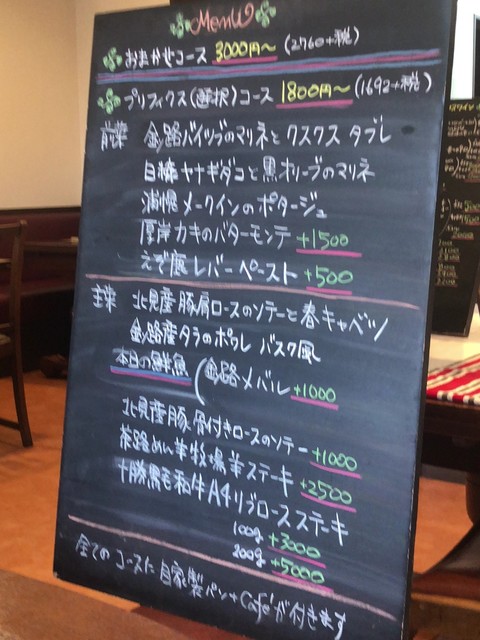 MenU
おまかせコース 3000円〜 (2760+税)
プリフィクス(選択)コース 1800円〜 (1692+税)
前菜 釧路バイツブのマリネとクスクス タブレ
白糠ヤナギダコと黒オリーブのマリネ
浦幌メークインのポタージュ
厚岸カキのバターモンテ +1500
えぞ鹿レバーペースト +500
主菜 北見産豚肩ロースのソテーと春キャベツ
釧路産タラのポワレ バスク風
本日の鮮魚 (釧路メバル +1000
北見産豚骨付きロースのソテー +1000
茶路めん羊牧場羊ステーキ +2500
十勝黒毛和牛A4リブロースステーキ
100g +3000
200g +5000
全てのコースに自家製パン+Caféが付きます